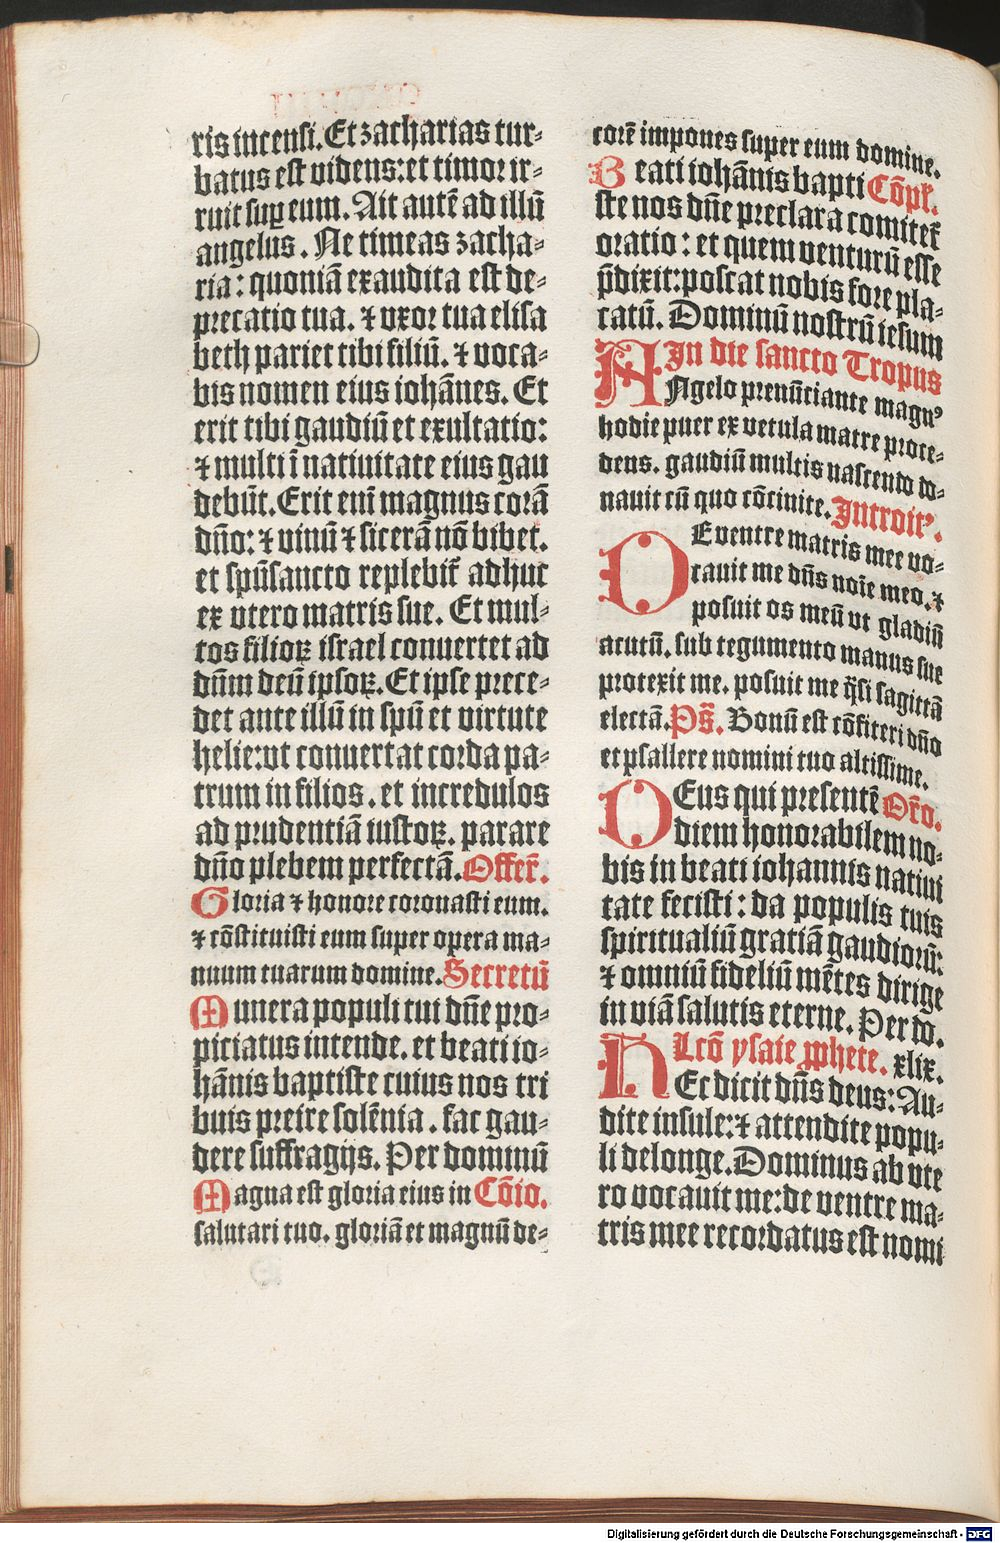 ris incensi. Et zacharias tur⸗
batus est videns: et timor ir⸗
ruit suꝑ eum. Ait autē ad illū
angelus. Ne timeas zacha⸗
ria: quoniā exaudita est de⸗
precatio tua. ⁊ vxor tua elisa
beth pariet tibi filiū. ⁊ voca⸗
bis nomen eius iohānes. Et
erit tibi gaudiū et exultatio:
⁊ multi ī natiuitate eius gau
debūt. Erit eni̅ magnus corā
dn̄o: ⁊ vinū ⁊ sicerā nō bibet.
et spū sancto replebit̄ adhuc
ex vtero matris sue. Et mul⸗
tos filioꝝ israel conuertet ad
dn̄m deū ipsoꝝ. Et ipse prece⸗
det ante illū in spū et virtute
helie: vt conuertat corda pa⸗
trum in filios. et incredulos
ad prudentiā iustoꝝ. parare
dn̄o plebem perfectā. Offer̄.
Gloria ⁊ honore coronasti eum.
⁊ cōstituisti eum super opera ma⸗
nuum tuarum domine. Secretū
Munera populi tui dn̄e pro⸗
piciatus intende. et beati io⸗
hānis baptiste cuius nos tri
buis preire solēnia. fac gau⸗
dere suffragijs. Per dominū
Magna est gloria eius in Cōio.
salutari tuo. gloriā et magnū de⸗
corē impones super eum domine.
Beati iohānis bapti Cōpl̄.
ste nos dn̄e preclara comitet̄
oratio: et quem venturū esse
p̄dixit: poscat nobis fore pla⸗
catū. Dominū nostrū iesum
In die sancto Tropus
ANgelo prenūciante magnꝰ
hodie puer ex vetula matre proce⸗
dens. gaudiū multis nascendo do⸗
nauit cū quo cōcinite. Introitꝰ.
DE ventre matris mee vo⸗
cauit me dn̄s noīe meo. ⁊
posuit os meū vt gladiū
acutū. sub tegumento manus sue
protexit me. posuit me q̄si sagittā
electā. Ps̄. Bonū est cōfiteri dn̄o
et psallere nomini tuo altissime.
DEus qui presentē Or̄o.
diem honorabilem no⸗
bis in beati iohannis natiui
tate fecisti: da populis tuis
spiritualiū gratiā gaudiorū:
⁊ omniū fideliū mētes dirige
in viā salutis eterne. Per do.
Lcō ysaie ꝓphete. xlix.
HEc dicit dn̄s deus: Au⸗
dite insule: ⁊ attendite popu⸗
li de longe. Dominus ab vte
ro vocauit me: de ventre ma⸗
tris mee recordatus est nomi
Digitalisierung gefördert durch die Deutsche Forschungsgemeinschaft - DFG